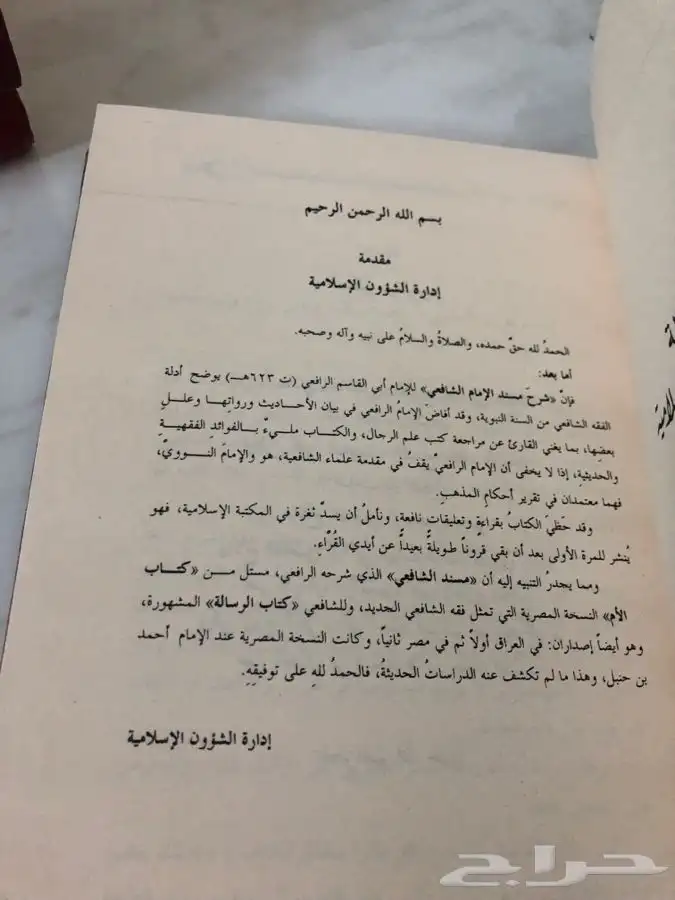 بسم الله الرحمن الرحيم
مقدمة
إدارة الشؤون الإسلامية
الحمدُ لله حقّ حمده، والصلاةُ والسلامُ على نبيه وآله وصحبه.
أما بعد:
فإنّ «شرحَ مسند الإمام الشافعي» للإمام أبي القاسم الرافعي (ت ٦٢٣هـ) يوضح أدلة
الفقه الشافعي من السنة النبوية، وقد أفاضَ الإمامُ الرافعي في بيان الأحاديث ورواتِها وعللِ
بعضِها، بما يغني القارئ عن مراجعة كتب علم الرجال، والكتاب مليءٌ بالفوائدِ الفقهيةِ
والحديثيةِ، إذا لا يخفى أن الإمام الرافعيّ يقفُ في مقدمة علماء الشافعية، هو والإمامَ النوويّ،
فهما معتمدان في تقرير أحكامِ المذهبِ.
وقد حَظيَ الكتابُ بقراءةٍ وتعليقاتٍ نافعةٍ، ونأملُ أن يسدّ ثغرة في المكتبة الإسلامية، فهو
يُنشر للمرة الأولى بعد أن بقي قروناً طويلةً بعيداً عن أيدي القُرّاءِ.
ومما يجدرُ التنبيه إليه أن «مسند الشافعي» الذي شرحه الرافعي، مستل من «كتاب
الأم» النسخة المصرية التي تمثل فقه الشافعي الجديد، وللشافعي «كتاب الرسالة» المشهورة،
وهو أيضاً إصداران: في العراق أولاً ثم في مصر ثانياً، وكانت النسخة المصرية عند الإمام أحمد
بن حنبل، وهذا ما لم تكشف عنه الدراساتُ الحديثةُ، فالحمدُ للهِ على توفيقِهِ.
إدارة الشؤون الإسلامية
حراج